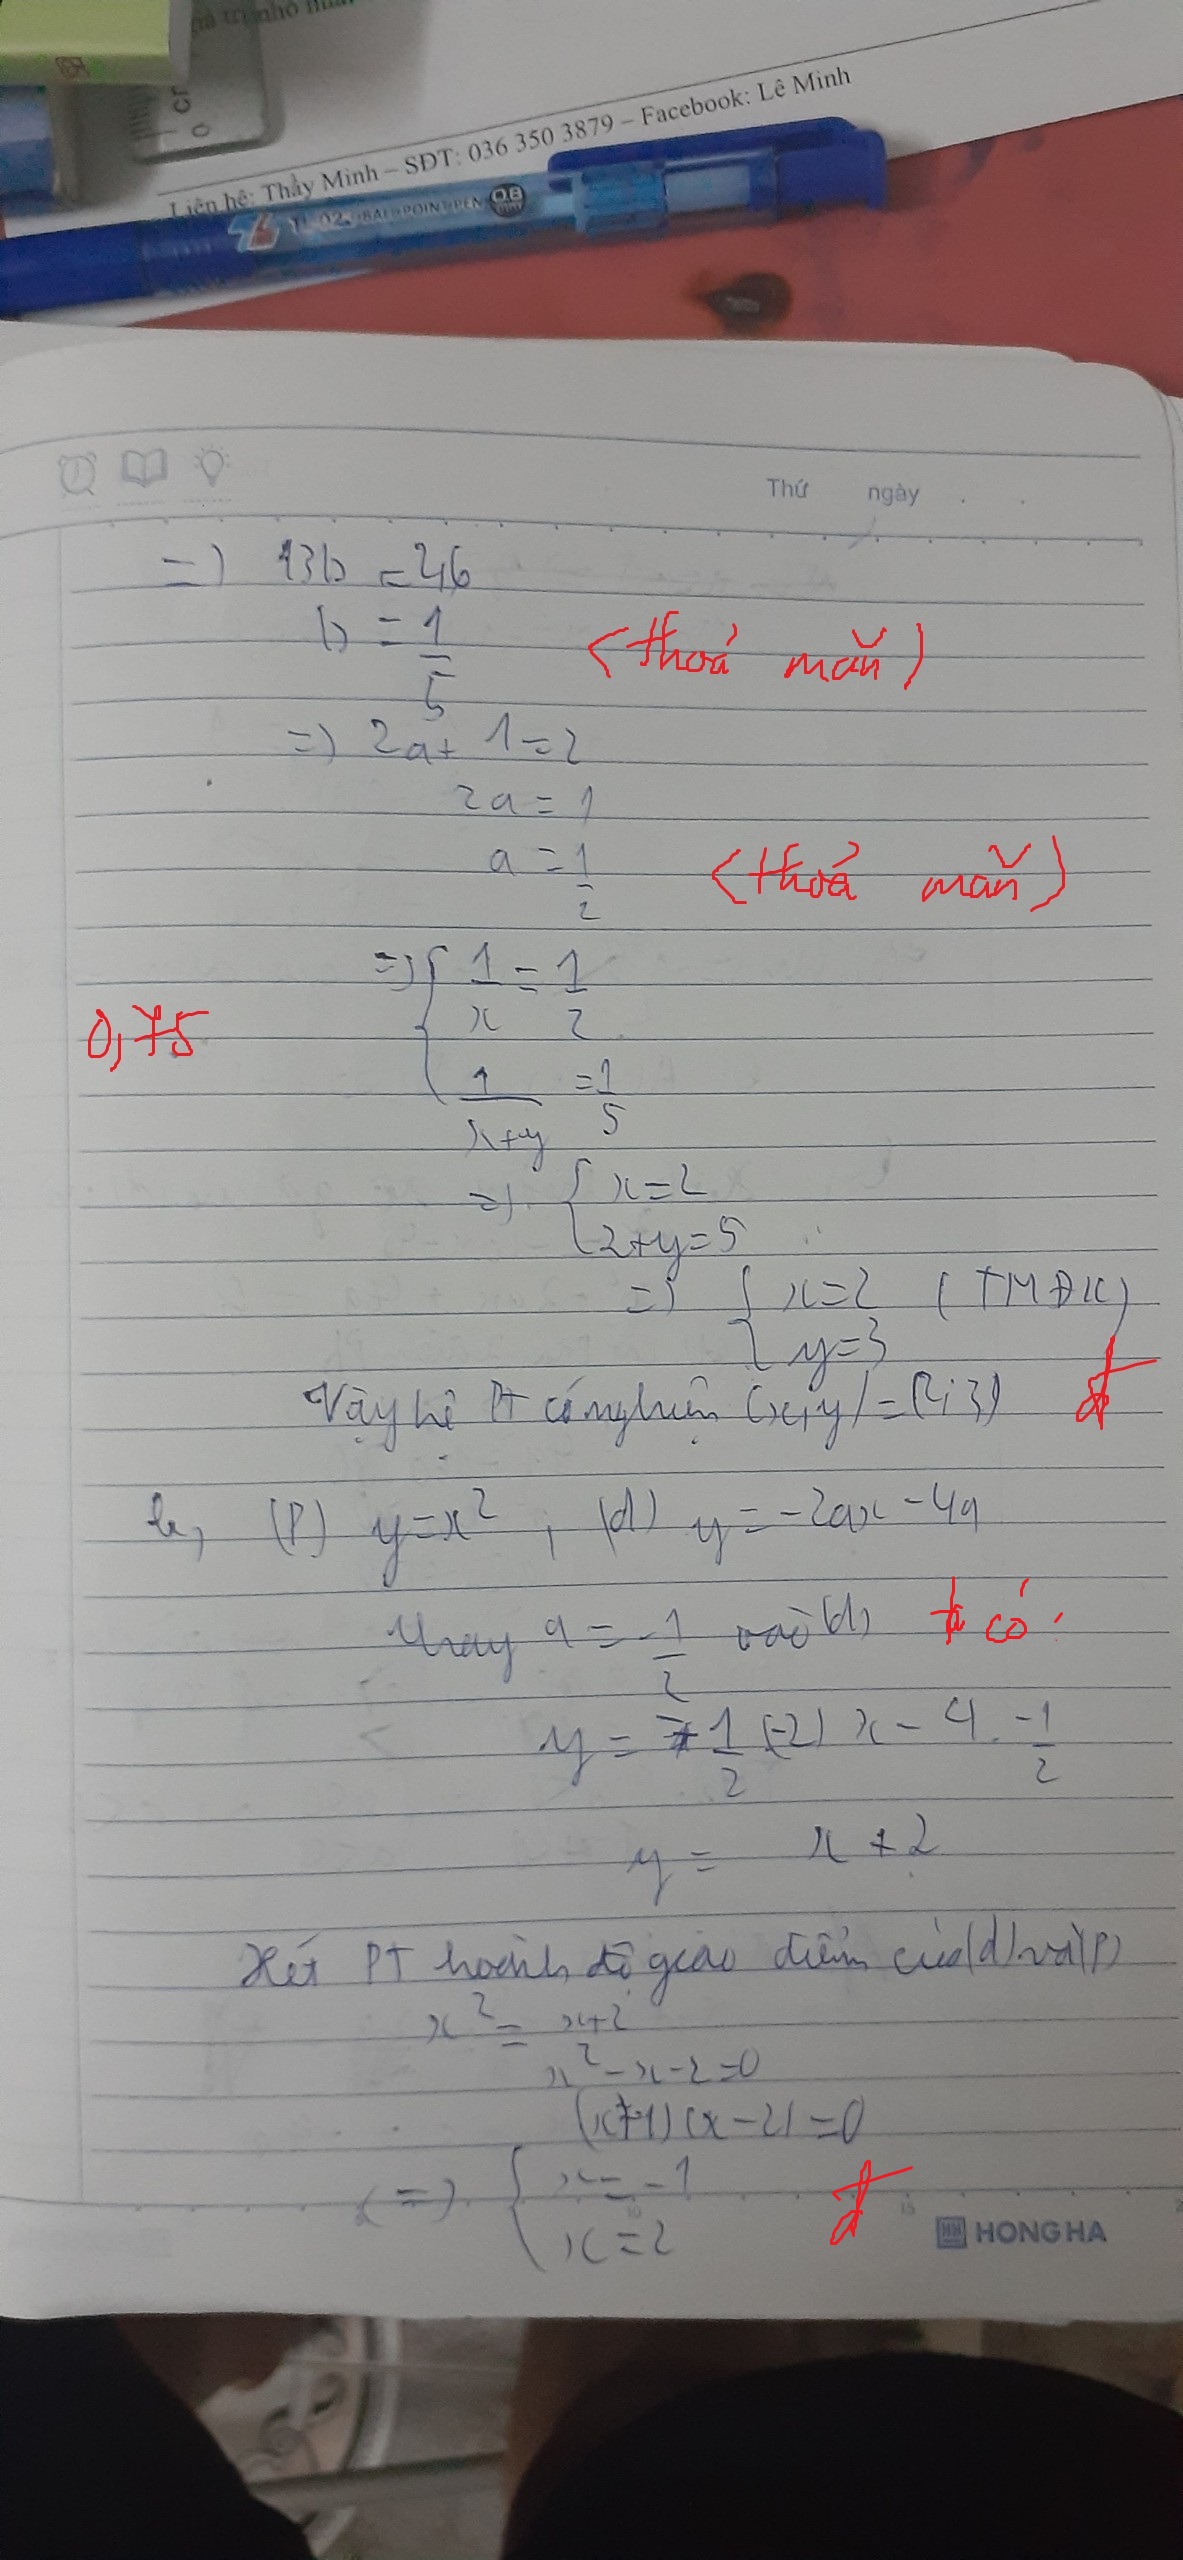 giá trị nhỏ
Liên hệ: Thầy Minh – SĐT: 036 350 3879 – Facebook: Lê Minh
TL-02 BALLPOINT PEN
Thứ ngày
=) 13b = 46
b = 1/5 (thoả mãn)
=) 2a + 1 = 2
2a = 1
a = 1/2 (thoả mãn)
=) { 1/x = 1/2
0,75
1/(x+y) = 1/5
=) { x = 2
2+y = 5
=) { x = 2 (TMĐK)
y = 3
Vậy hệ PT có nghiệm (x,y) = (2;3) đ
b, (P) y = x², (d) y = -2ax - 4a
thay a = -1/2 vào (d) ta có:
y = -1/2 (-2) x - 4. -1/2
y = x + 2
Xét PT hoành độ giao điểm của (d) và (P)
x² = x+2
x² - x - 2 = 0
(x+1)(x-2) = 0
(=) { x = -1 đ
x = 2
HONG HA